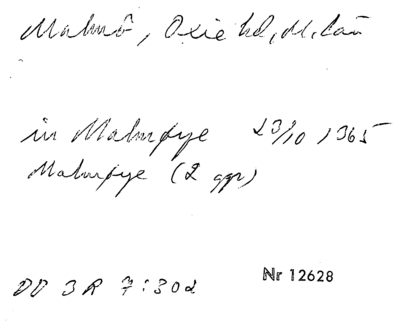 Malmö, Oxie hd, M. län
in Malmøye 23/10 1365
Malmøye (2 ggr)
DD 3R 7:302
Nr 12628